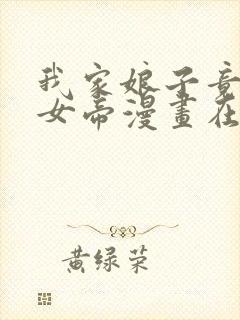 我家娘子竟
女帝漫畫在
黄绿荣